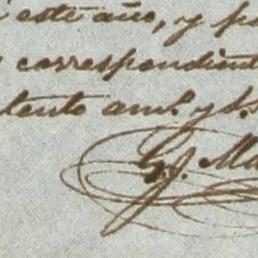 este año, y p
correspondient
tento am.º y S.S
G. J. Ma